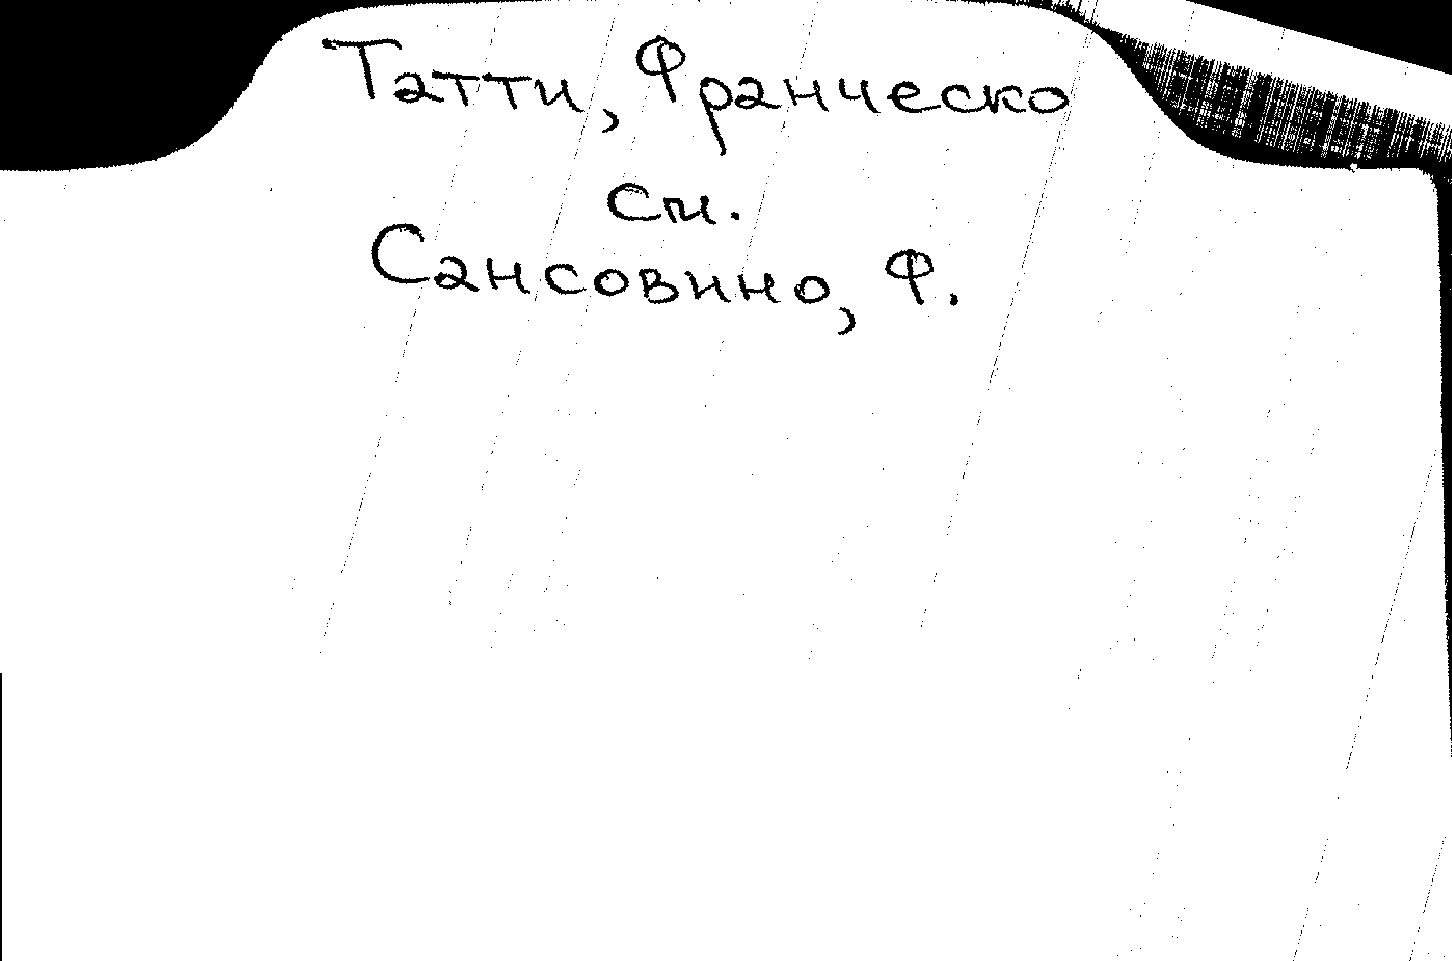 Татти, Франческо
см.
Сансовино, Ф.